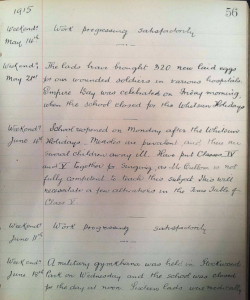 1915
56
Weekend: Work progressing satisfactorily
May 14th
Weekend: The lads have brought 320 new laid eggs
May 21st for our wounded soldiers in various hospitals.
Empire Day was celebrated on Friday morning,
when the school closed for the Whitsun Holidays
Weekend: School reopened on Monday after the Whitsun
June 4th Holidays. Measles are prevalent and there are
several children away ill. Have put Classes IV
and V together for Singing, as Mr is not
fully competent to teach this subject. This will
necessitate a few alterations in the Time Table of
Class
Weekend: Work progressing satisfactorily
June 11th
Weekend: A military gymkhana was held in
June 18th Park on Wednesday and the school was closed
for the day at noon. lads were medically